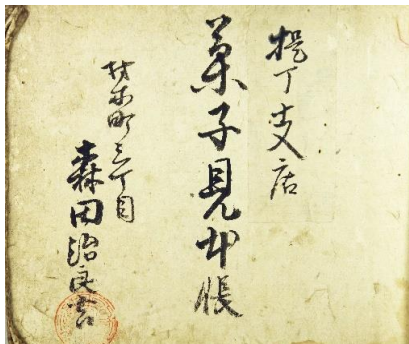 提丁支店
菓子見本帳
材木町三丁目
森田治良吉